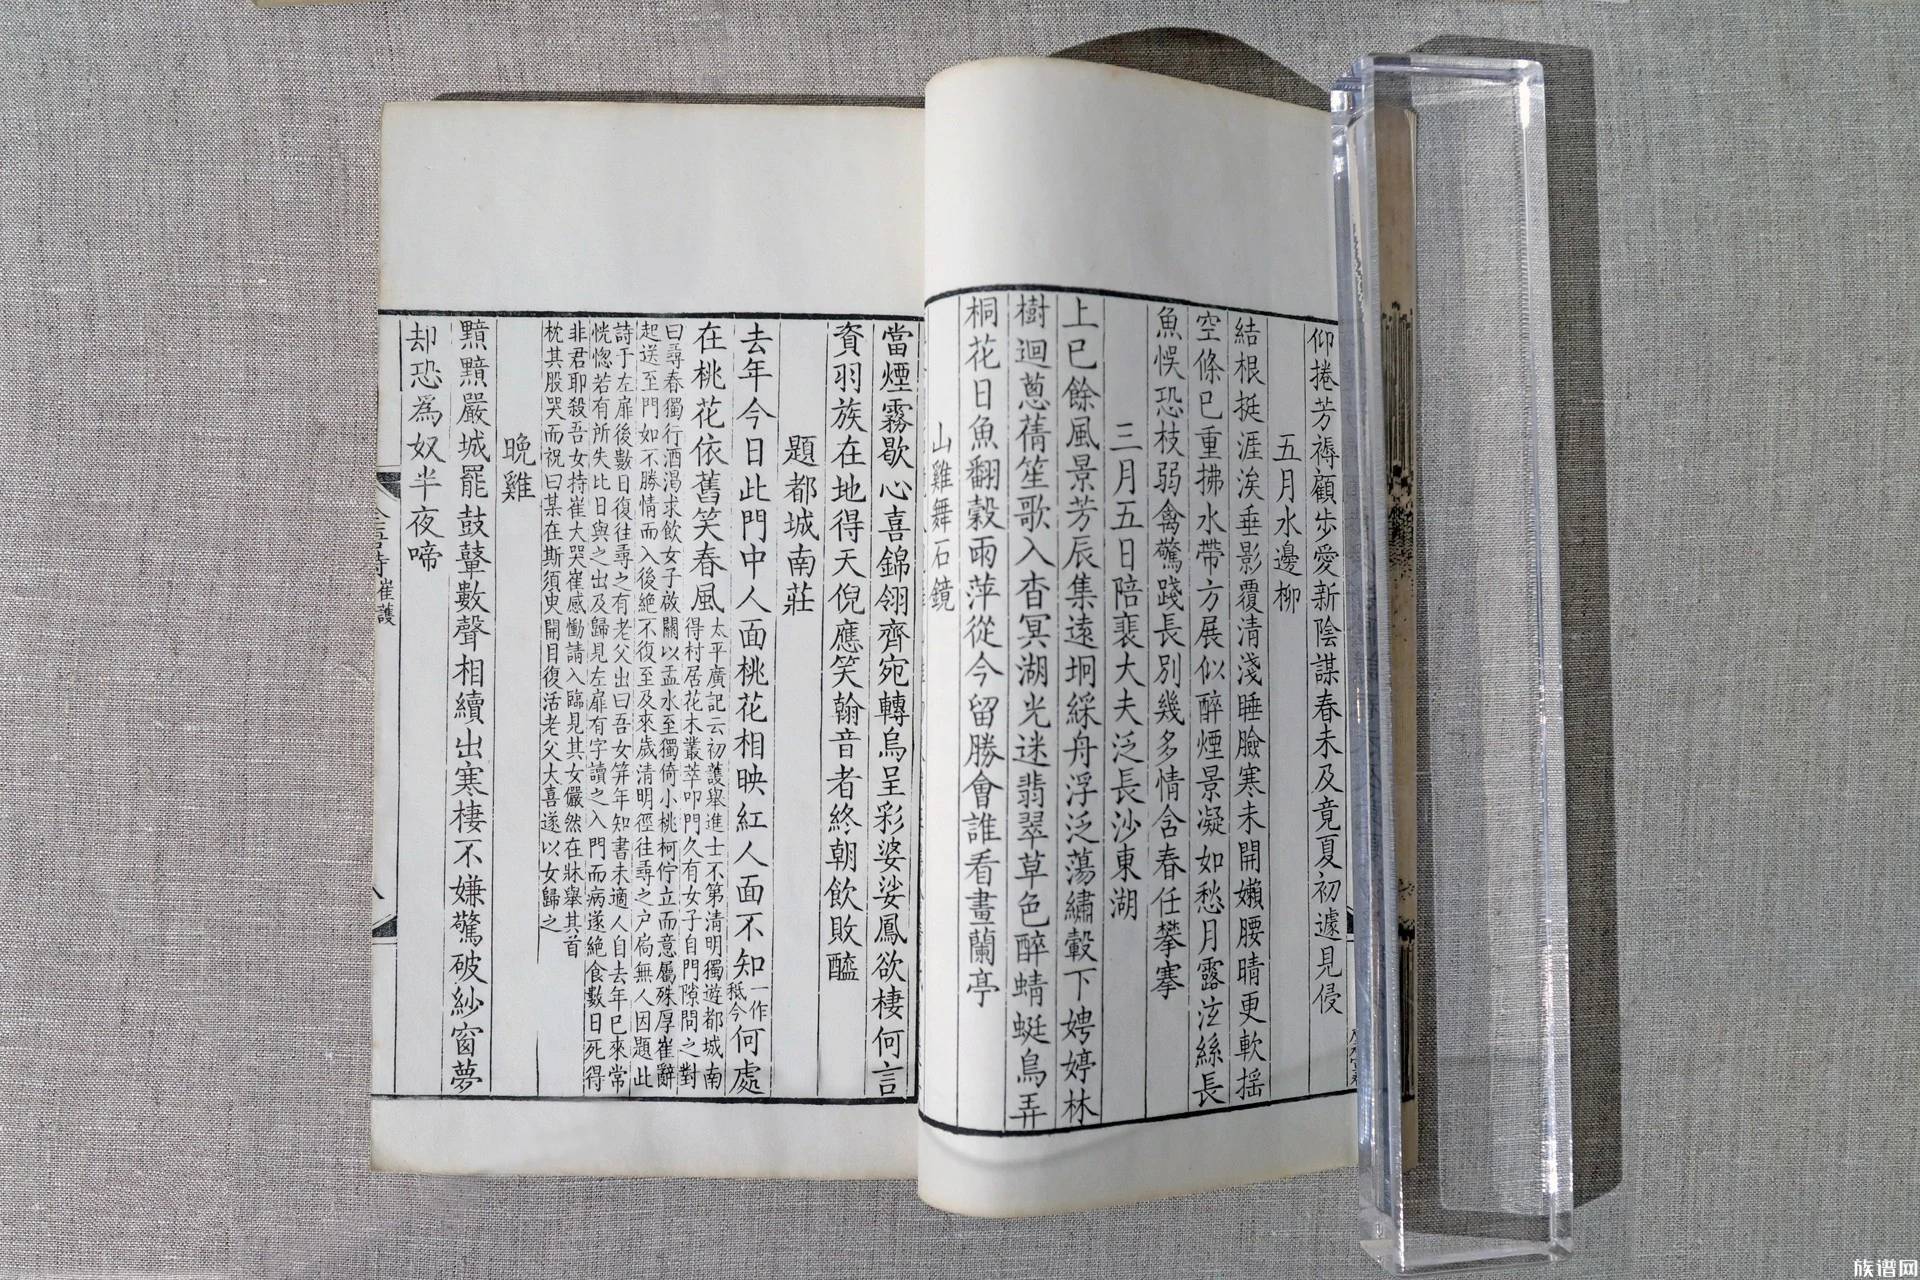 仰捲芳褥顧步愛新陰謀春未及竟夏初遽見侵
五月水邊柳
結根挺涯涘垂影覆清淺睡臉寒未開嬾腰晴更軟搖
空條已重拂水帶方展似醉煙景凝如愁月露泫絲長
魚悮恐枝弱禽驚踐長別幾多情含春任攀搴
三月五日陪裴大夫泛長沙東湖
上巳餘風景芳辰集遠坰綵舟浮泛蕩繡轂下娉婷林
樹迴蔥蒨笙歌入杳冥湖光迷翡翠草色醉蜻蜓鳥弄
桐花日魚翻穀雨萍從今留勝會誰看畫蘭亭
山雞舞石鏡
當煙霧歇心喜錦翎齊宛轉烏呈彩婆娑鳳欲棲何言
資羽族在地得天倪應笑翰音者終朝飲敗醯
題都城南莊
去年今日此門中人面桃花相映紅人面不知一作秖今何處
在桃花依舊笑春風太平廣記云初護舉進士不第清明獨遊都城南
得村居花木叢萃叩門久有女子自門隙問之對
曰尋春獨行酒渴求飲女子啟關以盂水至獨倚小桃柯佇立而意屬殊厚崔辭
起送至門如不勝情而入後絶不復至及來歲清明徑往尋之户扃無人因題此
詩于左扉後數日復往尋之有老父出曰吾女筓年知書未適人自去年已來常
恍惚若有所失比日與之出及歸見左扉有字讀之入門而病遂絶食數日死得
非君耶殺吾女持崔大哭崔感慟請入臨見其女儼然在牀舉其首
枕其股哭而祝曰某在斯須臾開目復活老父大喜遂以女歸之
晚雞
黯黯嚴城罷鼓鼙數聲相續出寒棲不嫌驚破紗窗夢
却恐為奴半夜啼
崔護
八
族谱网